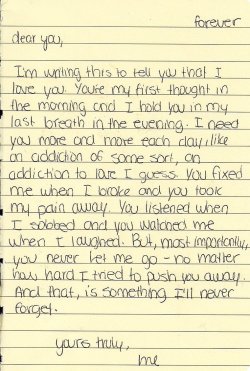 forever
dear you,
I'm writing this to tell you that I
love you. You're my first thought in
the morning and I hold you in my
last breath in the evening. I need
you more and more each day, like
an addiction of some sort, an
addiction to love I guess. You fixed
me when I broke and you took
my pain away. You listened when
I sobbed and you watched me
when I laughed. But, most importantly,
you never let me go - no matter
how hard I tried to push you away.
And that, is something I'll never
forget.
yours truly,
me